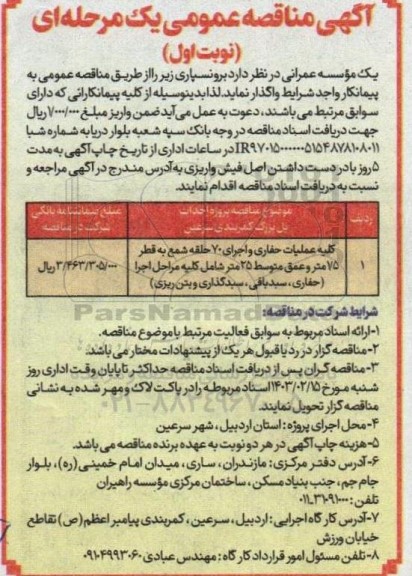 آگهی مناقصه عمومی یک مرحله‌ای
(نوبت اول)
یک مؤسسه عمرانی در نظر دارد برونسپاری زیر را از طریق مناقصه عمومی به
پیمانکار واجد شرایط واگذار نماید. لذا بدینوسیله از کلیه پیمانکارانی که دارای
سوابق مرتبط می باشند، دعوت به عمل می‌آید ضمن واریز مبلغ ۷/۰۰۰/۰۰۰ ریال
جهت دریافت اسناد مناقصه در وجه بانک سپه شعبه بلوار دریا به شماره شبا
در ساعات اداری از تاریخ چاپ آگهی به مدت
۵ روز با در دست داشتن اصل فیش واریزی به آدرس مندرج در آگهی مراجعه و
نسبت به دریافت اسناد مناقصه اقدام نمایند.
ردیف
موضوع مناقصه پروژه احداث
پل بزرگ کمربندی سرعین
مبلغ ضمانتنامه بانکی
شرکت در مناقصه
۱
کلیه عملیات حفاری و اجرای ۷۰ حلقه شمع به قطر
۷۵ متر و عمق متوسط ۲۵ متر شامل کلیه مراحل اجرا
(حفاری، سبدبافی، سبدگذاری و بتن ریزی)
۳/۴۶۳/۳۰۵/۰۰۰ ریال
شرایط شرکت در مناقصه:
۱-ارائه اسناد مربوط به سوابق فعالیت مرتبط با موضوع مناقصه.
۲-مناقصه گزار در رد یا قبول هر یک از پیشنهادات مختار می باشد.
۳-مناقصه گران پس از دریافت اسناد مناقصه حداکثر تا پایان وقت اداری روز
شنبه مورخ ۱۴۰۳/۰۲/۱۵ اسناد مربوطه را در پاکت لاک و مهر شده به نشانی
مناقصه گزار تحویل نمایند.
۴-محل اجرای پروژه: استان اردبیل، شهر سرعین
۵-هزینه چاپ آگهی در هر دو نوبت به عهده برنده مناقصه می باشد.
۶-آدرس دفتر مرکزی: مازندران، ساری، میدان امام خمینی (ره)، بلوار
جام جم، جنب بنیاد مسکن، ساختمان مرکزی مؤسسه راهیران
تلفن: ۰۱۱-۳۱۰۹۱۰۰۰
۷-آدرس کارگاه اجرایی: اردبیل، سرعین، کمربندی پیامبر اعظم (ص) تقاطع
خیابان ورزش
۸-تلفن مسئول امور قرارداد کارگاه: مهندس عبادی ۰۹۱۰۴۹۹۳۰۶۰